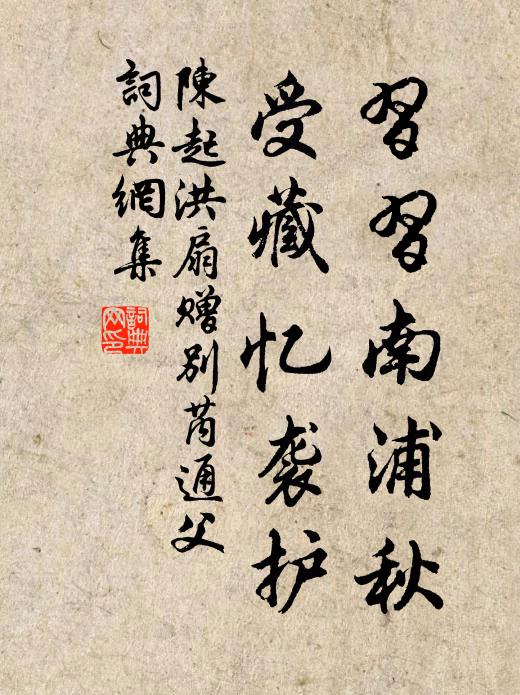 習習南浦秋
受藏忆袭护
陳起洪扇赠别芮通父
詞典網集
詞典網印